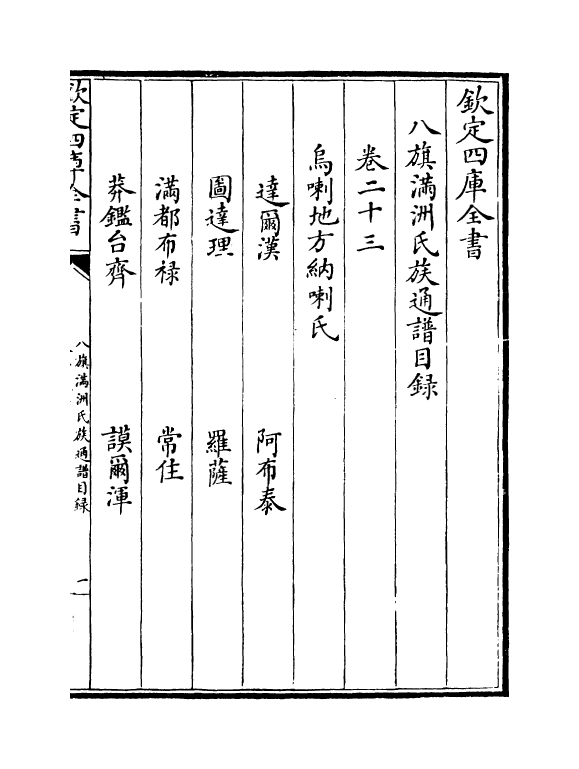 欽定四庫全書
八旗滿洲氏族通譜目録
卷二十三
烏喇地方納喇氏
達爾漢 阿布泰
圖達理 羅薩
滿都布禄 常住
莽鑑台齊 謨爾渾
欽定四庫全書 八旗滿洲氏族通譜目録